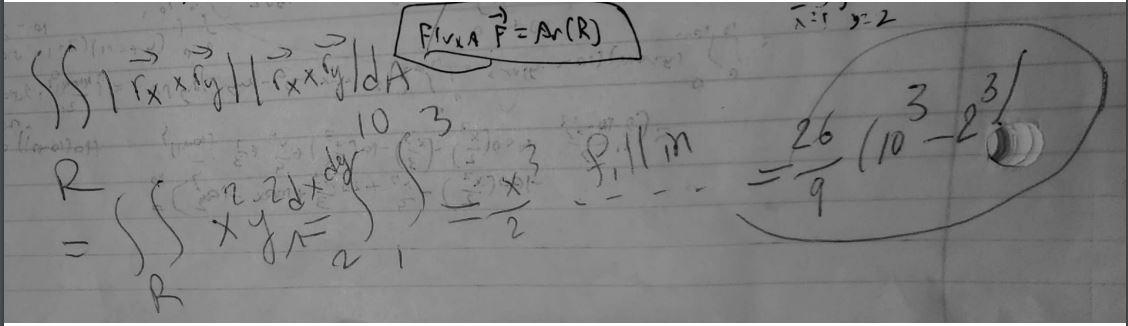 Flux F⃗ = Ar(R)
x=1 y=2
∫∫ |r⃗x × r⃗y| |r⃗x × r⃗y| dA
R
= ∫∫R x² y² dx dy = ∫₂¹⁰ ∫₁³ = x³/2 fill in - - - - = 26/9 (10³ - 2³)